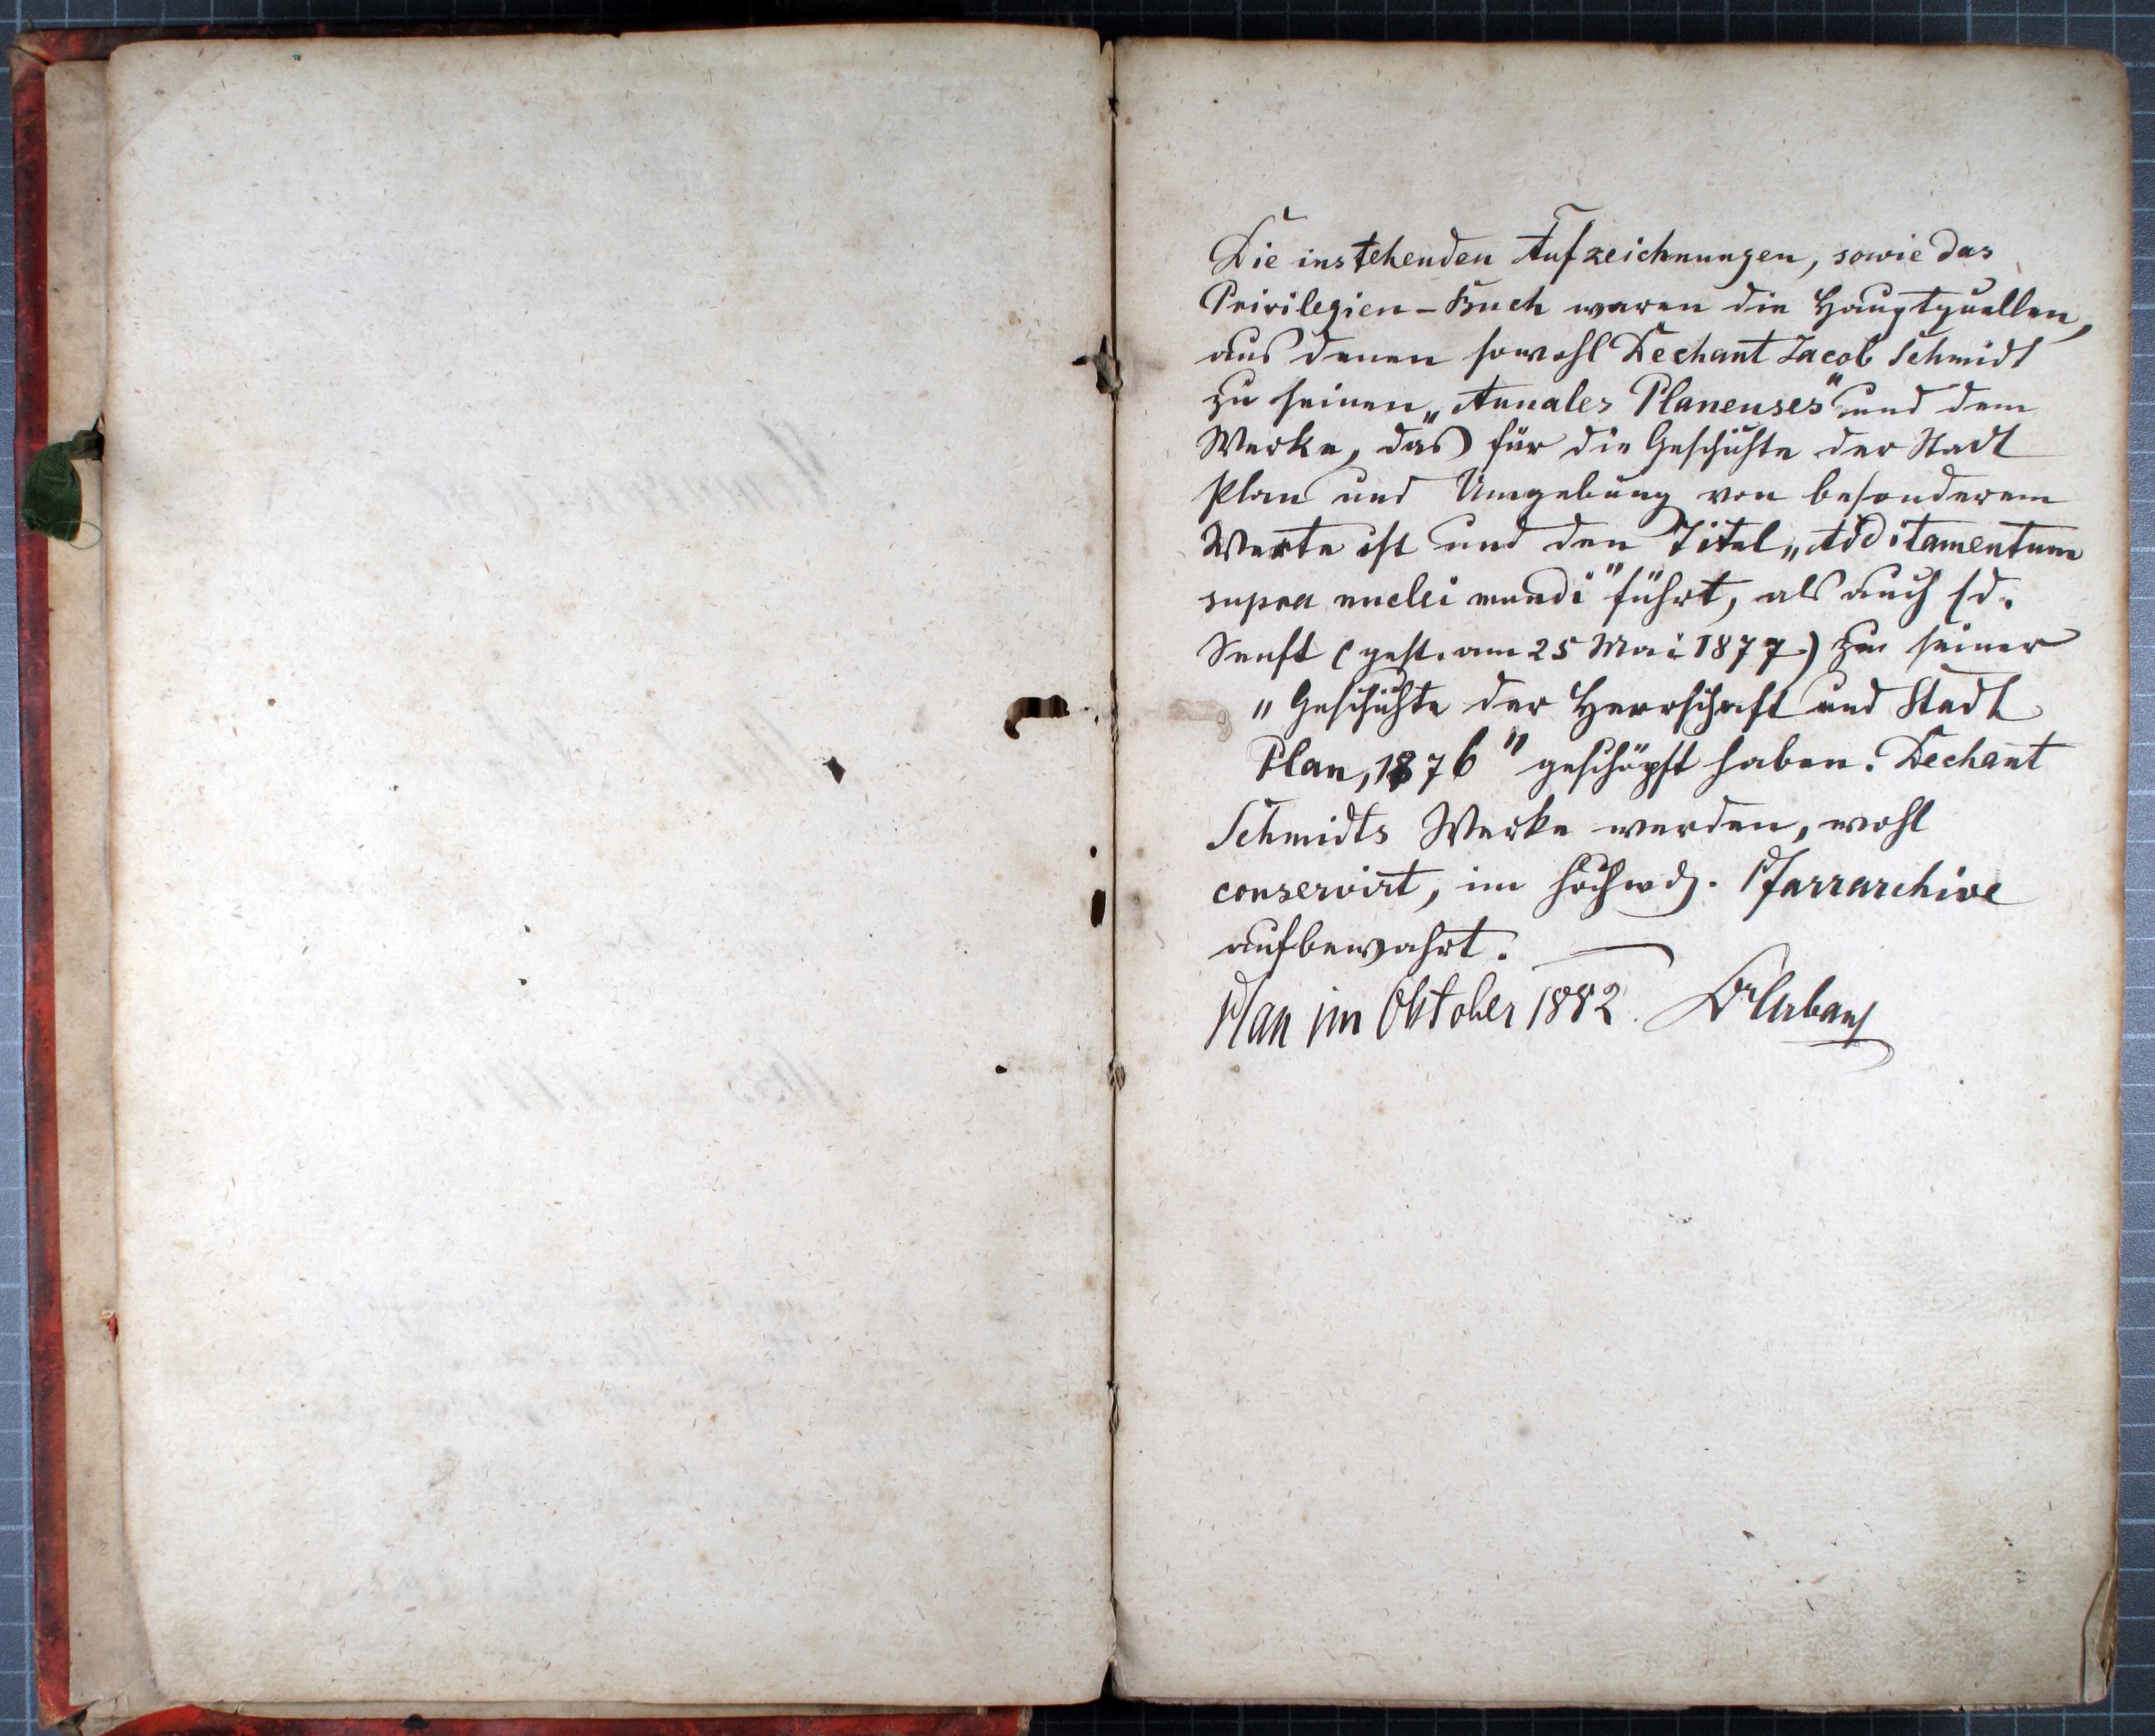 Die instehenden Aufzeichnungen, sowie das
Privilegien-Buch waren die Hauptquellen,
aus denen sowohl Dechant Jacob Schmidt
zu seinen „Annales Planenses" und dem
Werke, das für die Geschichte der Stadt
Plan und Umgebung von besonderem
Werte ist und den Titel „Additamentum
supra nuclei mundi" führt, als auch Ed.
Senft (gest. am 25 Mai 1877) zu seiner
„Geschichte der Herrschaft und Stadt
Plan, 1876" geschöpft haben. Dechant
Schmidts Werke werden, wohl
conservirt, im hochwdg. Pfarrarchive
aufbewahrt. —
Plan im Oktober 1882. Dr Urban